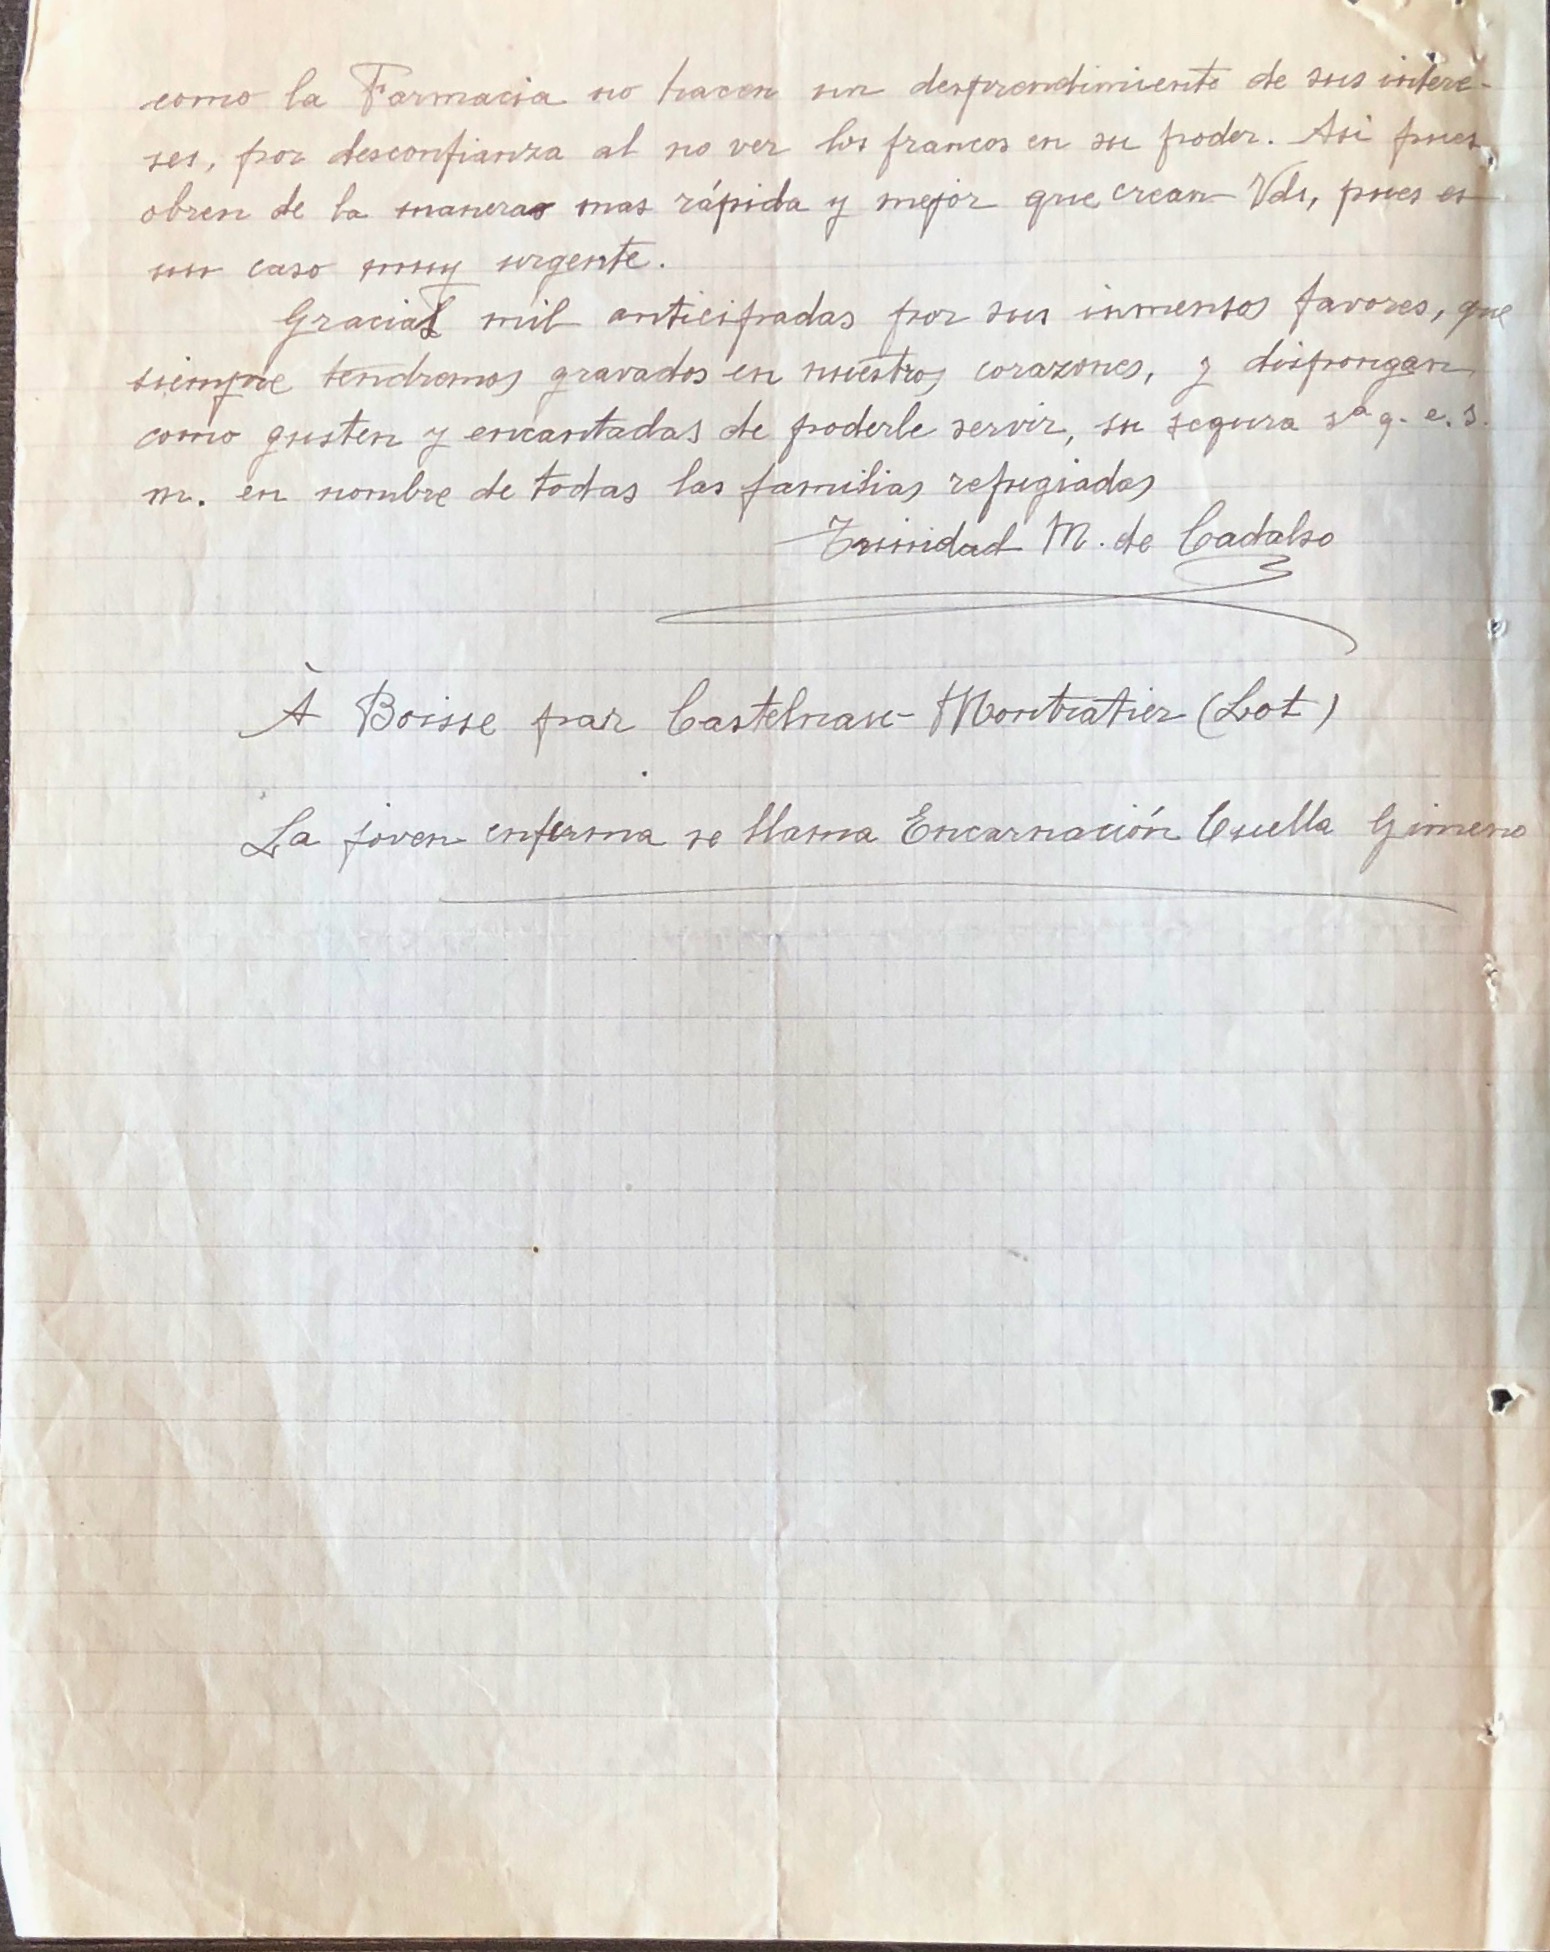 como la Farmacia no hacen un desprendimiento de sus intere-
ses, por desconfianza al no ver los francos en su poder. Asi pues
obren de la manera mas rápida y mejor que crean Vds, pues es
un caso muy urgente.
Gracias mil anticipadas por sus inmensos favores, que
siempre tendremos gravados en nuestros corazones, y dispongan
como gusten y encantadas de poderle servir, su segura sª q. e. s.
m. en nombre de todas las familias refugiadas
Trinidad M. de Cadalso
À Boisse par Castelnau-Montratier (Lot)
La joven enferma se llama Encarnación Cuella Gimeno